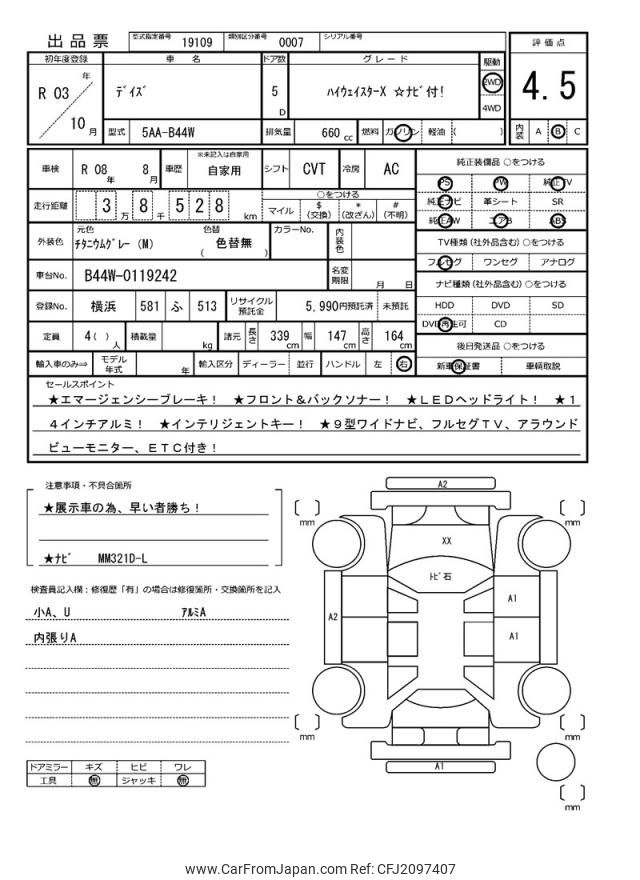 出品票 型式指定番号 19109 類別区分番号 0007 シリアル番号
初年度登録 車名 ドア数 グレード 駆動 評価点
R 03 年 10 月 ﾃﾞｲｽﾞ 5 D ﾊｲｳｪｲｽﾀｰX ☆ﾅﾋﾞ付! 2WD 4WD 4.5
型式 5AA-B44W 排気量 660 cc 燃料 ガソリン 軽油 ( ) 内装 A B C
車検 R 08 年 8 月 車歴 ※未記入は自家用 自家用 シフト CVT 冷房 AC
純正装備品 ○をつける
PS PW 純正TV
純正ナビ 革シート SR
純正AW エアB ABS
走行距離 3 万 8 千 5 2 8 km ○をつける
マイル $(交換) *(改ざん) #(不明)
外装色 元色 ﾁﾀﾆｳﾑｸﾞﾚｰ (M) 色替 ( 色替無 ) カラーNo. 内装色
TV種類 (社外品含む) ○をつける
フルセグ ワンセグ アナログ
車台No. B44W-0119242 名変期限 月 日
ナビ種類 (社外品含む) ○をつける
HDD DVD SD
DVD再生可 CD
登録No. 横浜 581 ふ 513 リサイクル預託金 5,990円預託済 未預託
定員 4( ) 人 積載量 kg 諸元 長さ 339 cm 幅 147 cm 高さ 164 cm
後日発送品 ○をつける
新車保証書 車輌取説
輸入車のみ⇒ モデル年式 年 輸入区分 ディーラー 並行 ハンドル 左 右
セールスポイント
★エマージェンシーブレーキ! ★フロント&バックソナー! ★LEDヘッドライト! ★1
4インチアルミ! ★インテリジェントキー! ★9型ワイドナビ、フルセグTV、アラウンド
ビューモニター、ETC付き!
注意事項・不具合箇所
★展示車の為、早い者勝ち!
★ﾅﾋﾞ MM321D-L
検査員記入欄:修復歴「有」の場合は修復箇所・交換箇所を記入
小A、U ｱﾙﾐA
内張りA
A2
mm
mm
XX
ﾄﾋﾞ石
A1
A2
A1
mm
mm
A1
mm
ドアミラー キズ ヒビ ワレ
工具 無 ジャッキ 無
www.CarFromJapan.com Ref: CFJ2097407